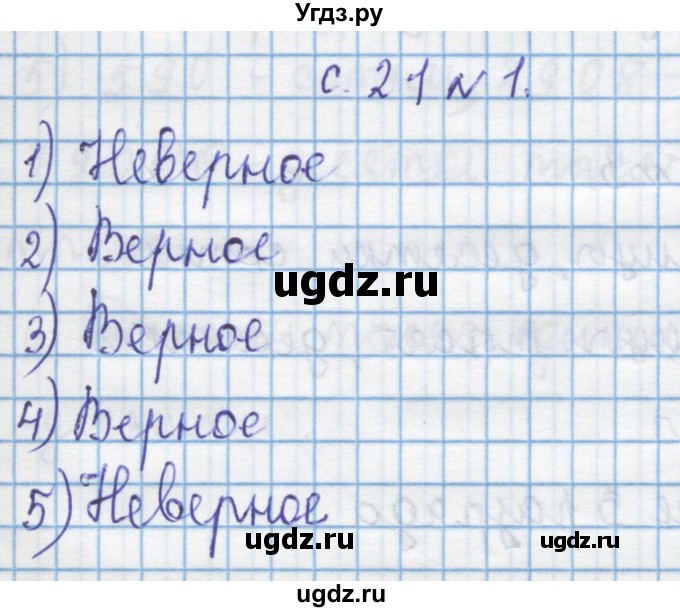 Угдз.ру
с. 21 № 1.
1) Неверное
2) Верное
ugdz.ru
3) Верное
4) Верное
5) Неверное
ugdz.ru
ugdz.ru
ugdz.ru